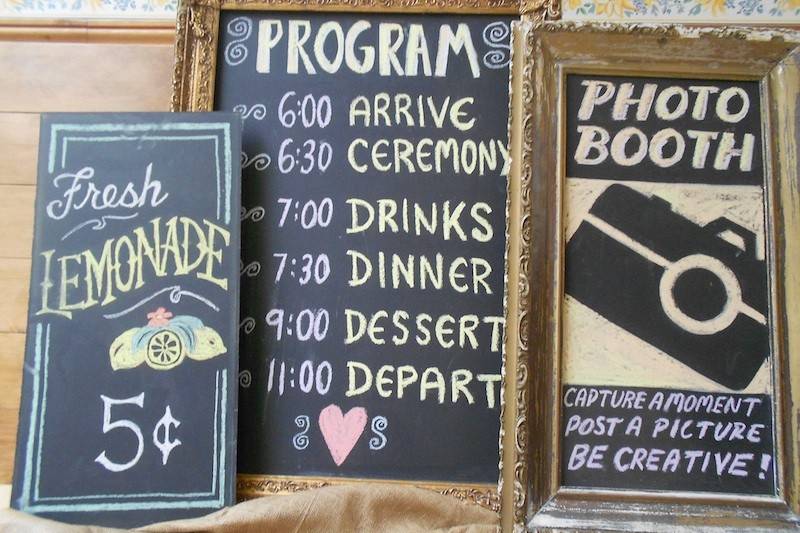 Fresh
LEMONADE
5¢
PROGRAM
6:00 ARRIVE
6:30 CEREMONY
7:00 DRINKS
7:30 DINNER
9:00 DESSERT
11:00 DEPART
PHOTO
BOOTH
CAPTURE A MOMENT
POST A PICTURE
BE CREATIVE!